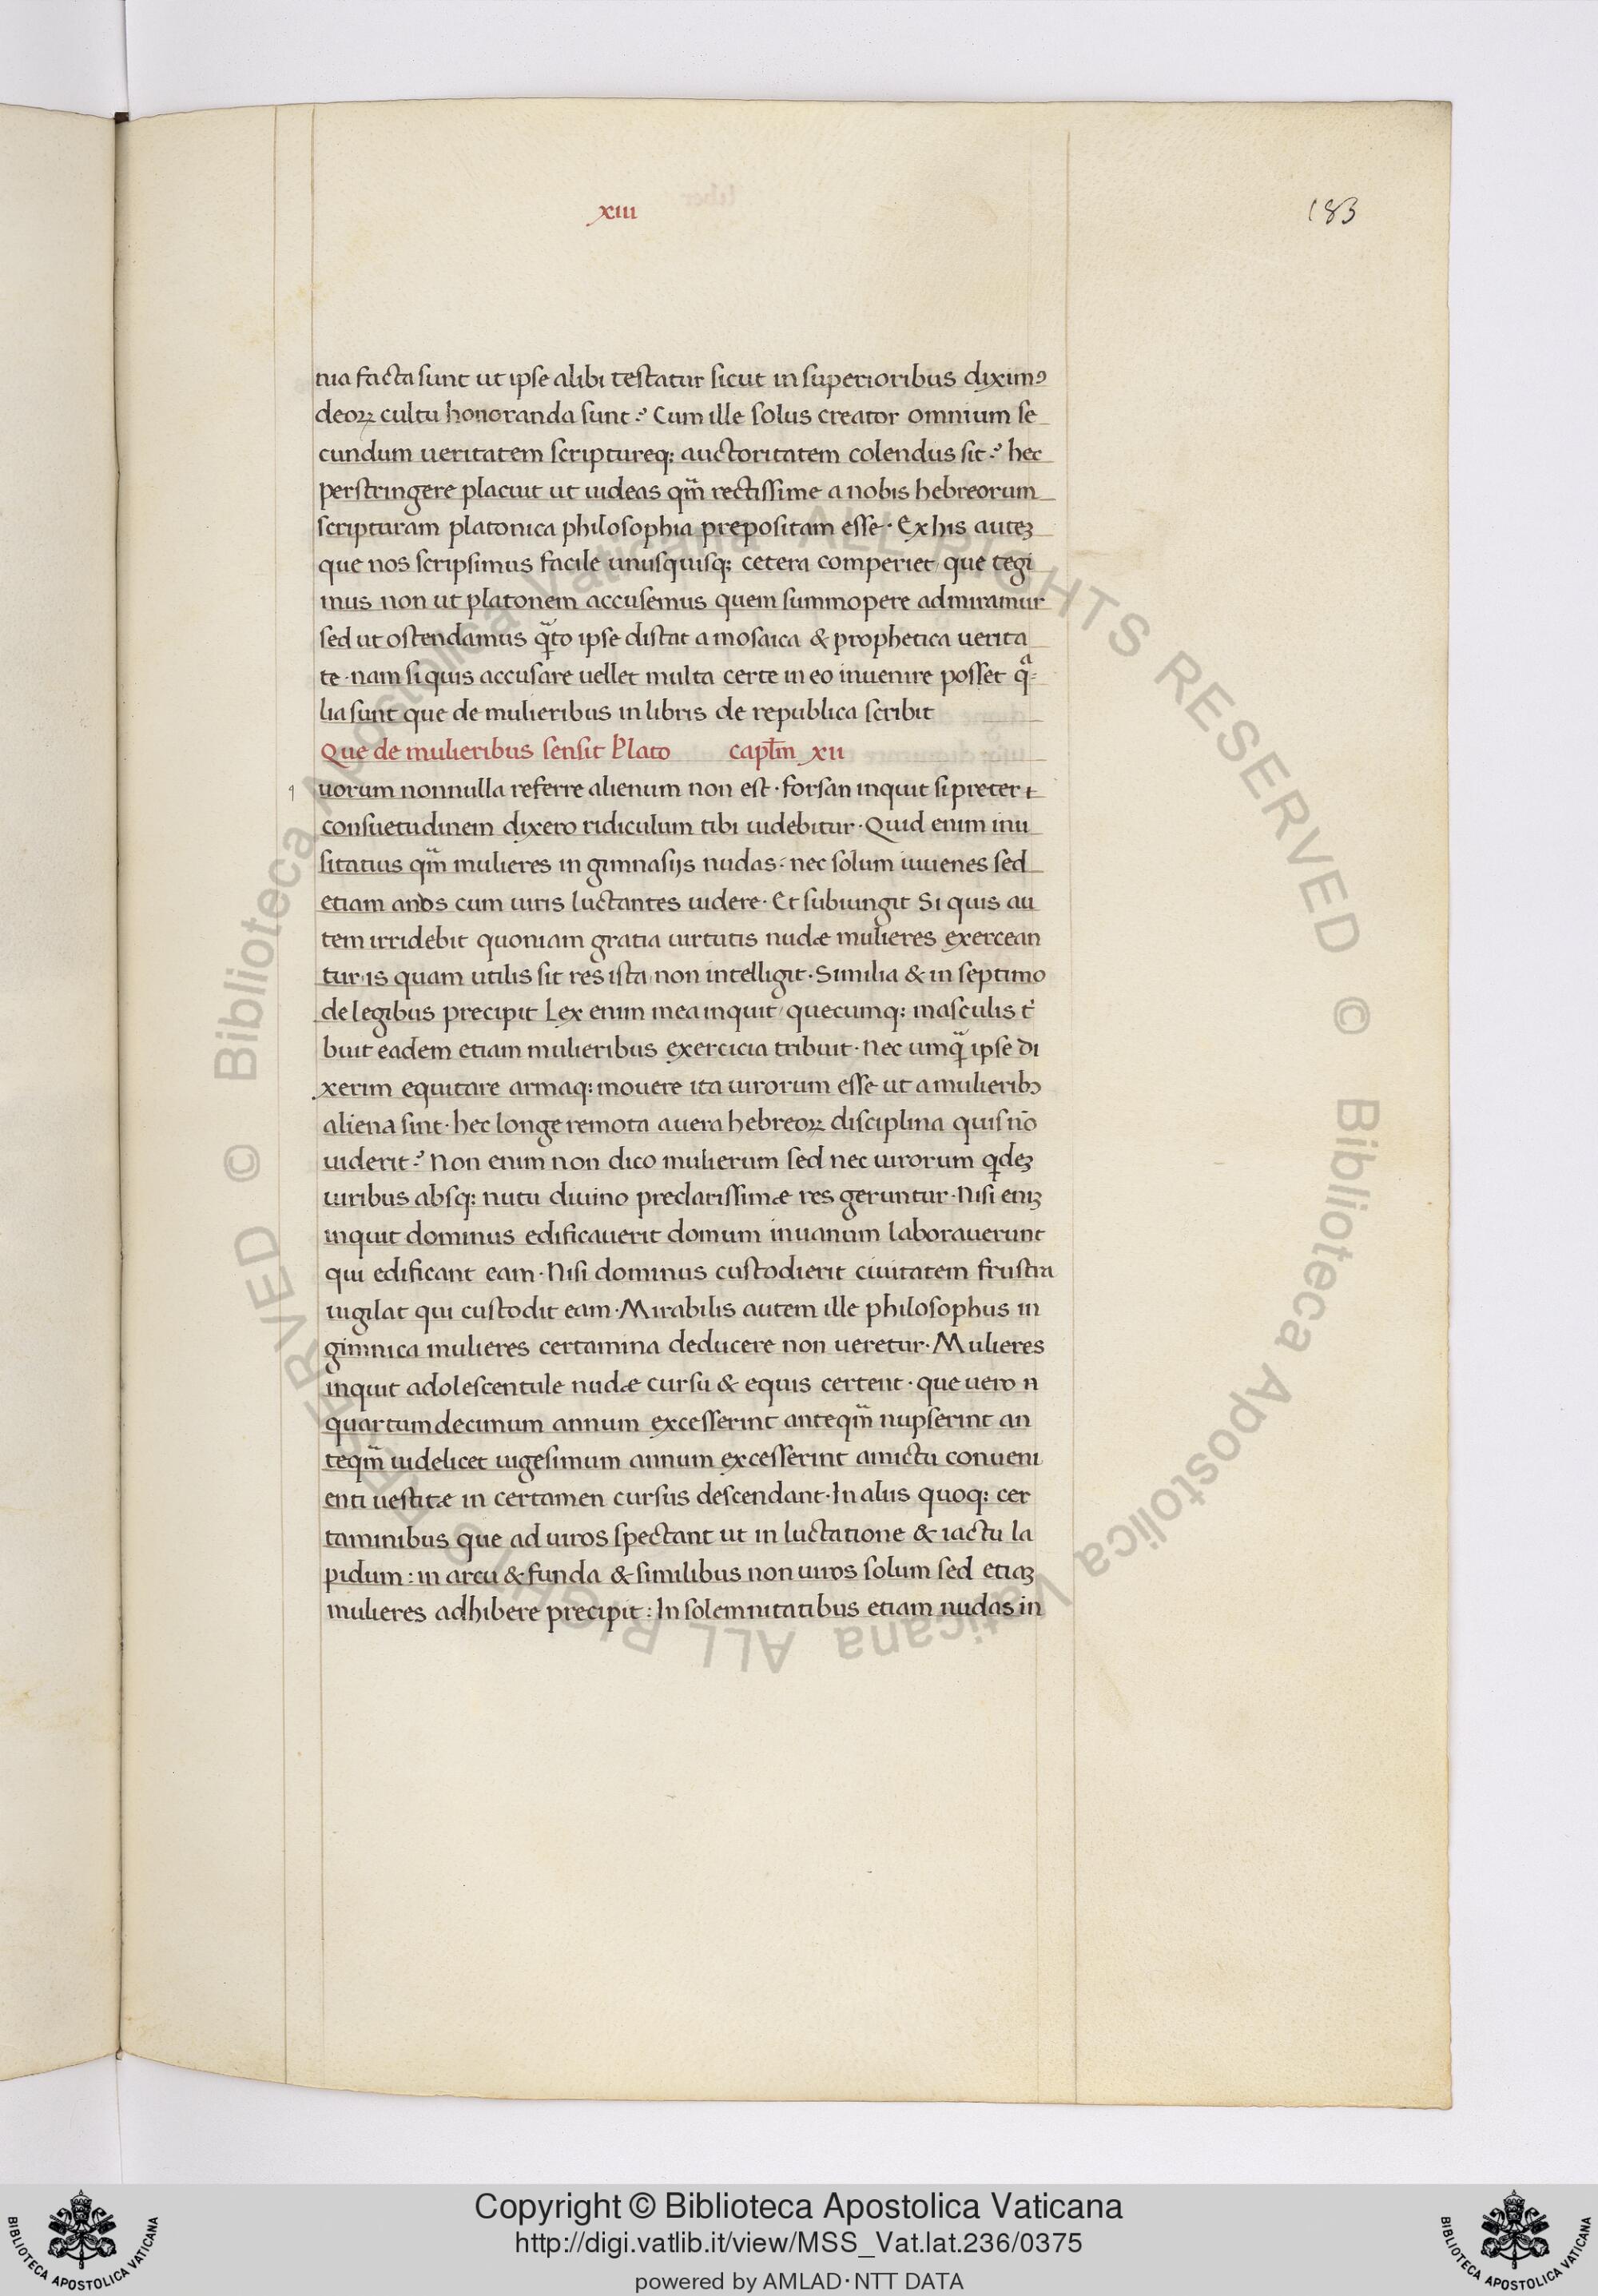 xiii
183
nia facta sunt ut ipse alibi testatur sicut in superioribus diximꝰ
deoꝝ cultu honoranda sunt? Cum ille solus creator omnium se
cundum ueritatem scriptureqꝫ auctoritatem colendus sit? hec
perstringere placuit ut uideas qm̃ rectissime a nobis hebreorum
scripturam platonica philosophia prepositam esse· Ex his auteꝫ
que nos scripsimus facile unusquisqꝫ cetera comperiet/ que tegi
mus non ut platonem accusemus quem summopere admiramur
sed ut ostendamus qᷓto ipse distat a mosaica & prophetica uerita
te· nam si quis accusare uellet multa certe in eo inuenire posset qᷓ-
lia sunt que de mulieribus in libris de republica scribit
Que de mulieribus sensit Plato capl̃m xii
q uorum nonnulla referre alienum non est· forsan inquit si preter
consuetudinem dixero ridiculum tibi uidebitur· Quid enim inu
sitatius qm̃ mulieres in gimnasijs nudas: nec solum iuuenes sed
etiam anos cum uiris luctantes uidere· Et subiungit Si quis au
tem irridebit quoniam gratia uirtutis nudæ mulieres exercean
tur· is quam utilis sit res ista non intelligit· Similia & in septimo
de legibus precipit Lex enim mea inquit/ quecumqꝫ masculis t͛
buit eadem etiam mulieribus exercicia tribuit· Nec umqᷓ ipse di
xerim equitare armaqꝫ mouere ita uirorum esse ut a mulieribꝫ
aliena sint· hec longe remota a uera hebreoꝝ disciplina quis nõ
uiderit? Non enim non dico mulierum sed nec uirorum qͥdeꝫ
uiribus absqꝫ nutu diuino preclarissimæ res geruntur· Nisi eniꝫ
inquit dominus edificauerit domum inuanum laborauerunt
qui edificant eam· Nisi dominus custodierit ciuitatem frustra
uigilat qui custodit eam· Mirabilis autem ille philosophus in
gimnica mulieres certamina deducere non ueretur· Mulieres
inquit adolescentule nudæ cursu & equis certent· que uero n̄
quartumdecimum annum excesserint anteqm̃ nupserint an
teqm̃ uidelicet uigesimum annum excesserint amictu conueni
enti uestitæ in certamen cursus descendant· In aliis quoqꝫ cer
taminibus que ad uiros spectant ut in luctatione & iactu la
pidum: in arcu & funda & similibus non uiros solum sed etiaꝫ
mulieres adhibere precipit: In solemnitatibus etiam nudas in
Copyright © Biblioteca Apostolica Vaticana
http://digi.vatlib.it/view/MSS_Vat.lat.236/0375
powered by AMLAD·NTT DATA
BIBLIOTECA APOSTOLICA VATICANA
BIBLIOTECA APOSTOLICA VATICANA
© Biblioteca Apostolica Vaticana ALL RIGHTS RESERVED © Biblioteca Apostolica Vaticana ALL RIGHTS RESERVED